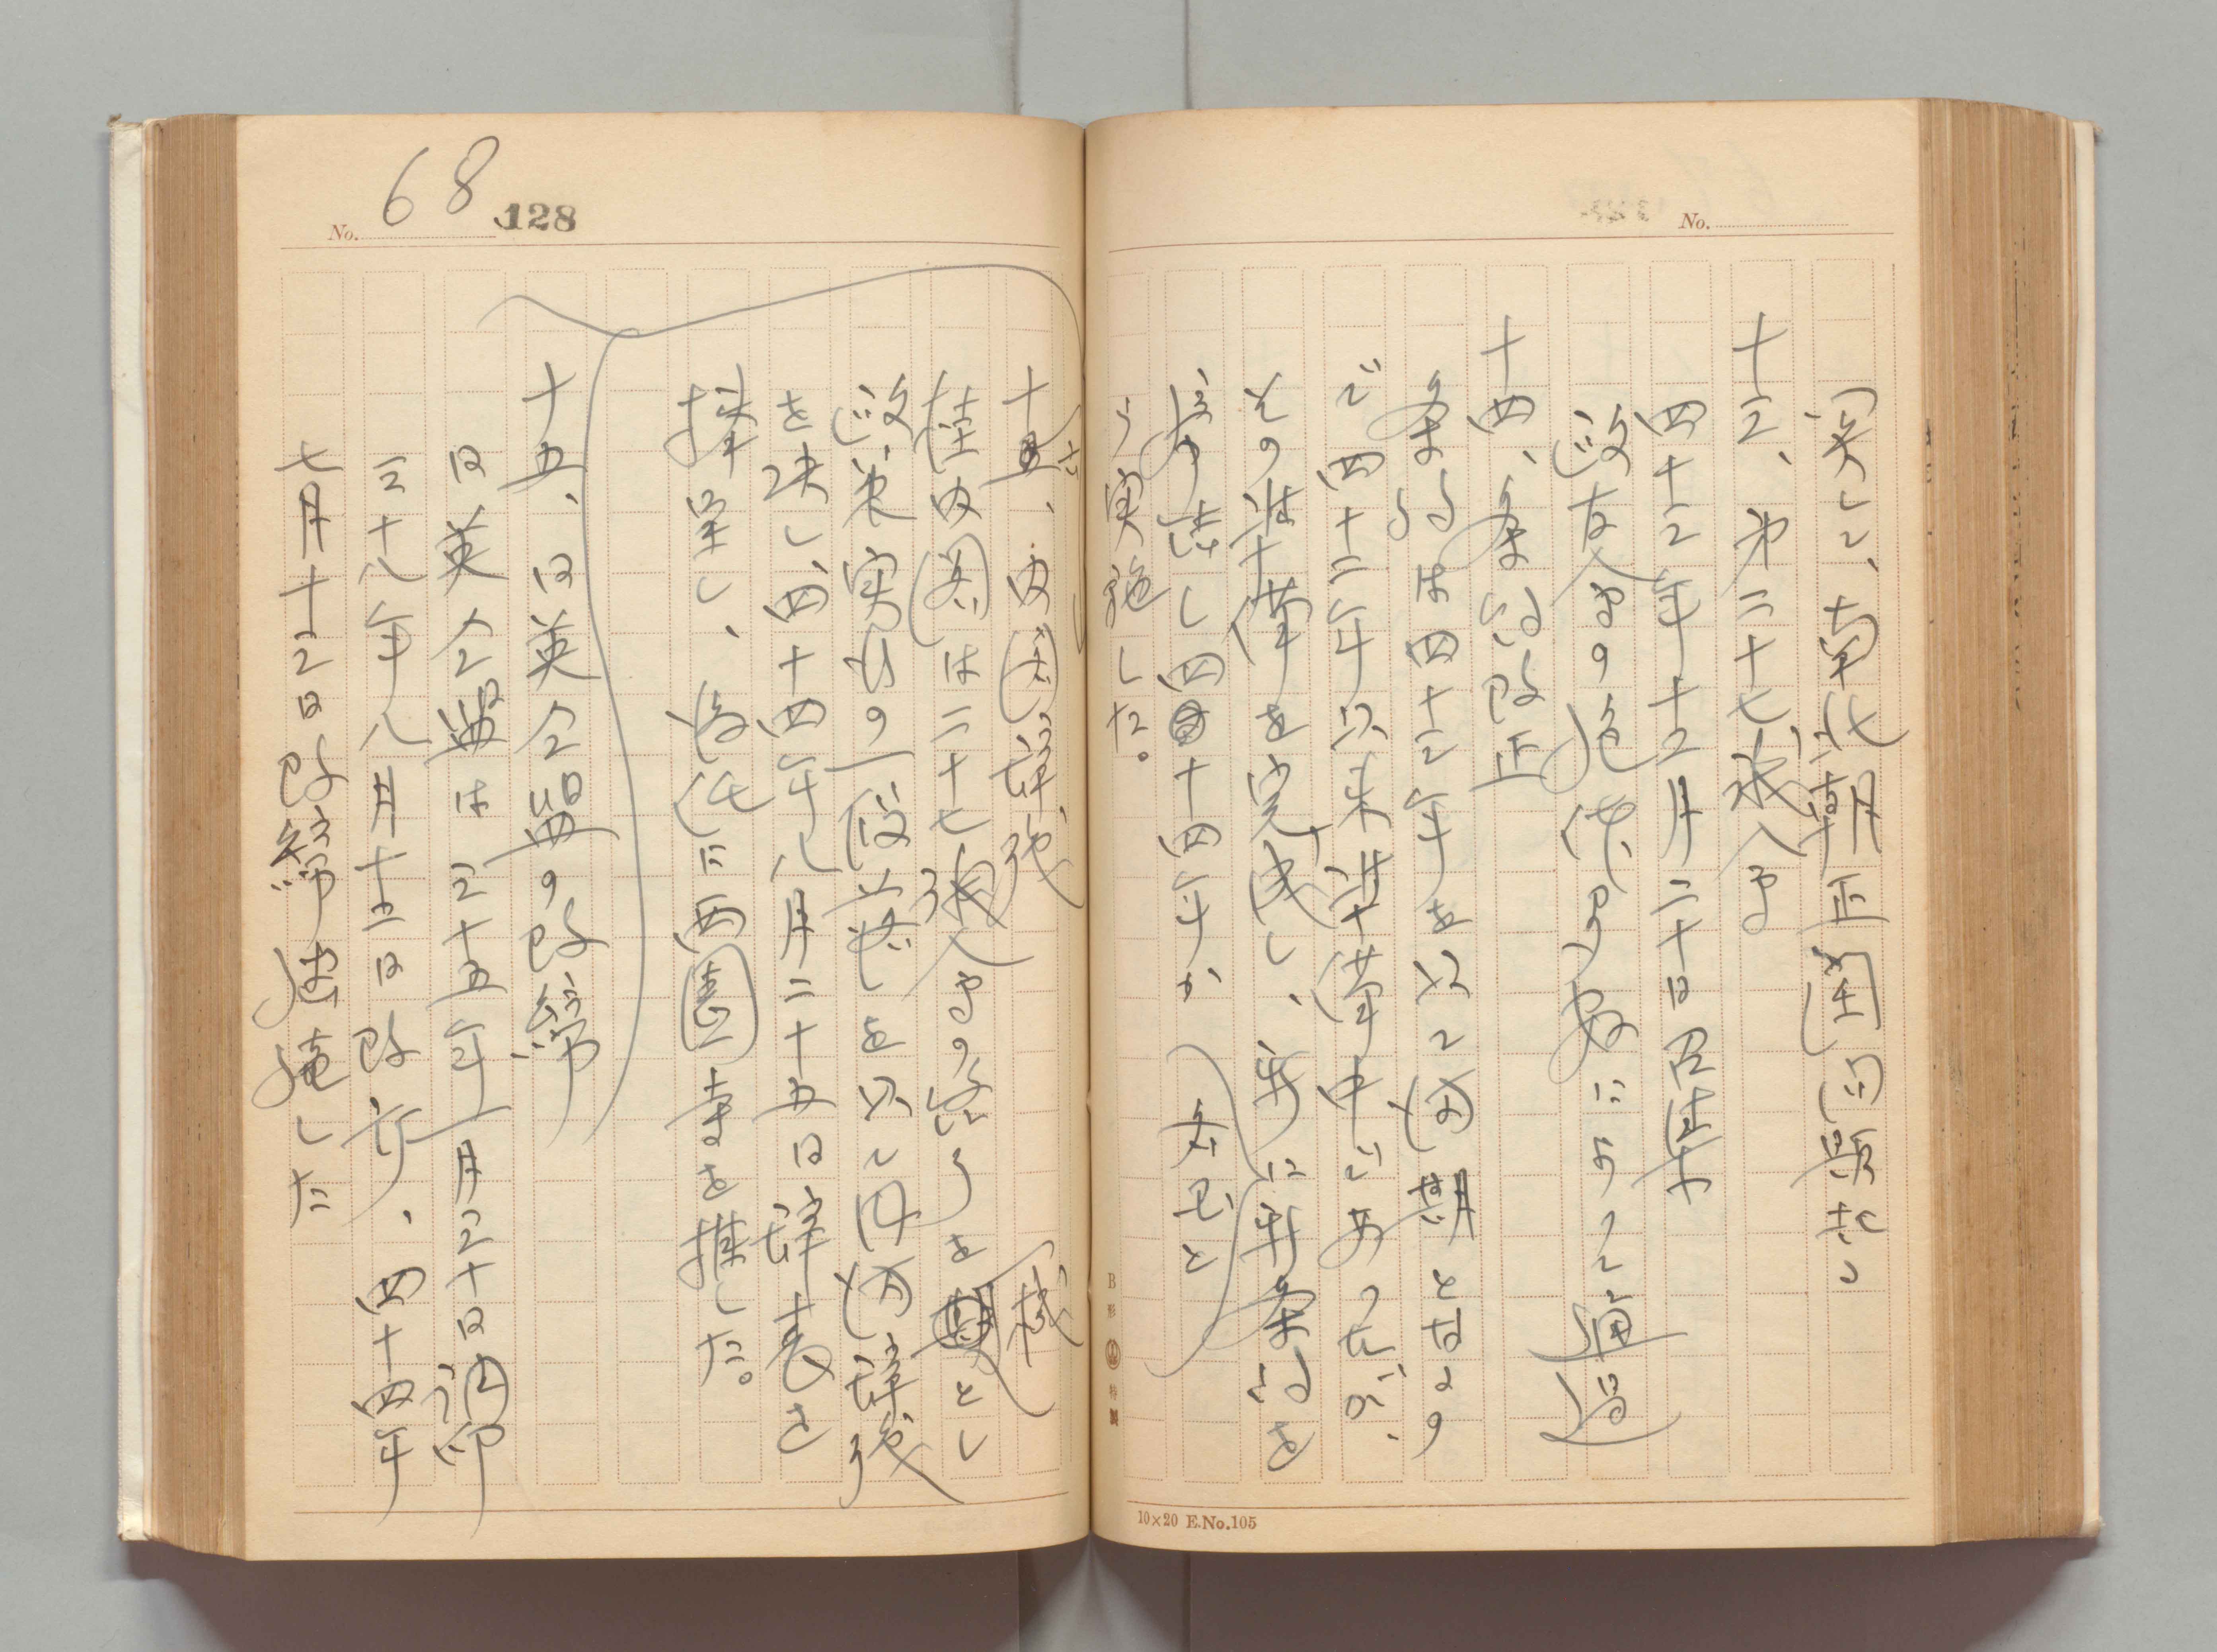 No.
突して、南北朝正閏問題起る
十三、第二十七議会
四十三年十二月二十日召集
政友会の絶対多数によって通過
十四、条約改正
条約は四十三年を以て満期となるの
で四十二年以来準備中であったが、
その準備を完成し、新に新条約を
締結し四十四年から
各国と
う実施した。
B形 特製
10×20 E.No.105
No. 68 128
十六、内閣辞職
桂内閣は二十七議会の終了を機とし
政策実行の一段落を以て内閣辞職
を決し、四十四年八月二十五日辞表を
捧呈し、後任に西園寺を推した。
十五、日英同盟の改締
日英同盟は三十五年一月三十日調印
三十八年八月十二日改訂、四十四年
七月十三日改締継続した